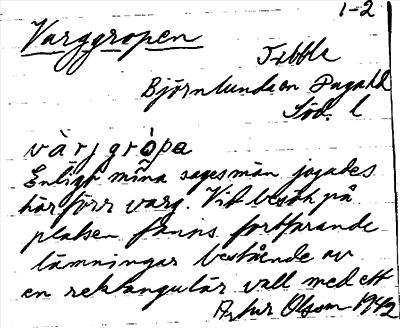 1-2
Varggropen
Tibble
Björnlunda sn Daga hd
Söd. l
vàrjgrópa
Enligt mina sagesmän jagades
här förr varg. Vid besök på
platsen fanns fortfarande
lämningar bestående av
en rektangulär vall med ett
Artur Olsson 1942